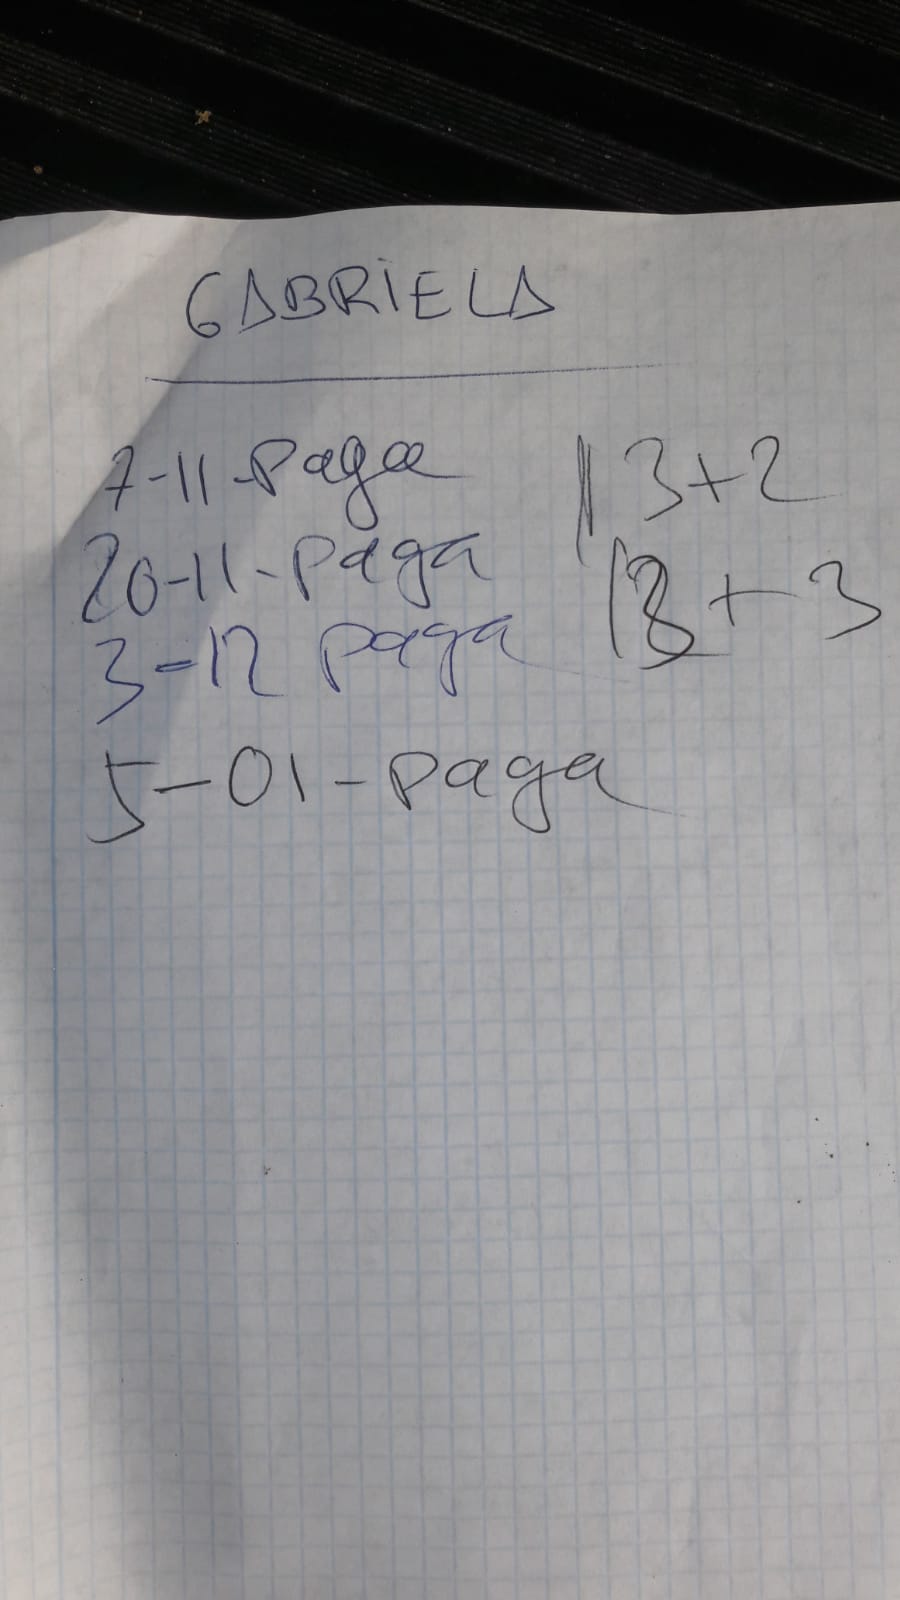 GABRIELA
7-11-Paga 13+2
20-11-Paga 13+3
3-12 Paga
5-01-Paga